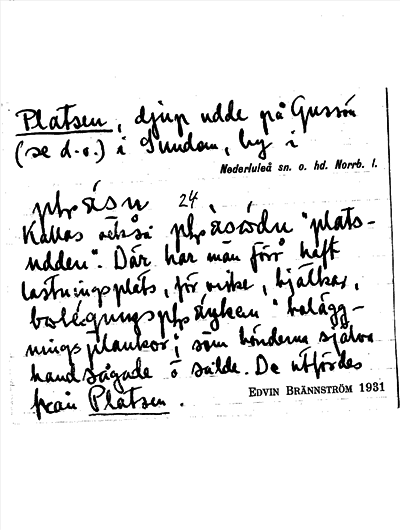 Platsen, djup udde på Gussön
(se d.o.) i Sundom, by i
Nederluleå sn. o. hd. Norrb. l.
24
Kallas också "plats-
udden". Där har man förr haft
lastningsplats, för virke, bjälkar,
"belägg-
ningsplankor", som bönderna själva
handsågade o sålde. De utfördes
från Platsen.
EDVIN BRÄNNSTRÖM 1931